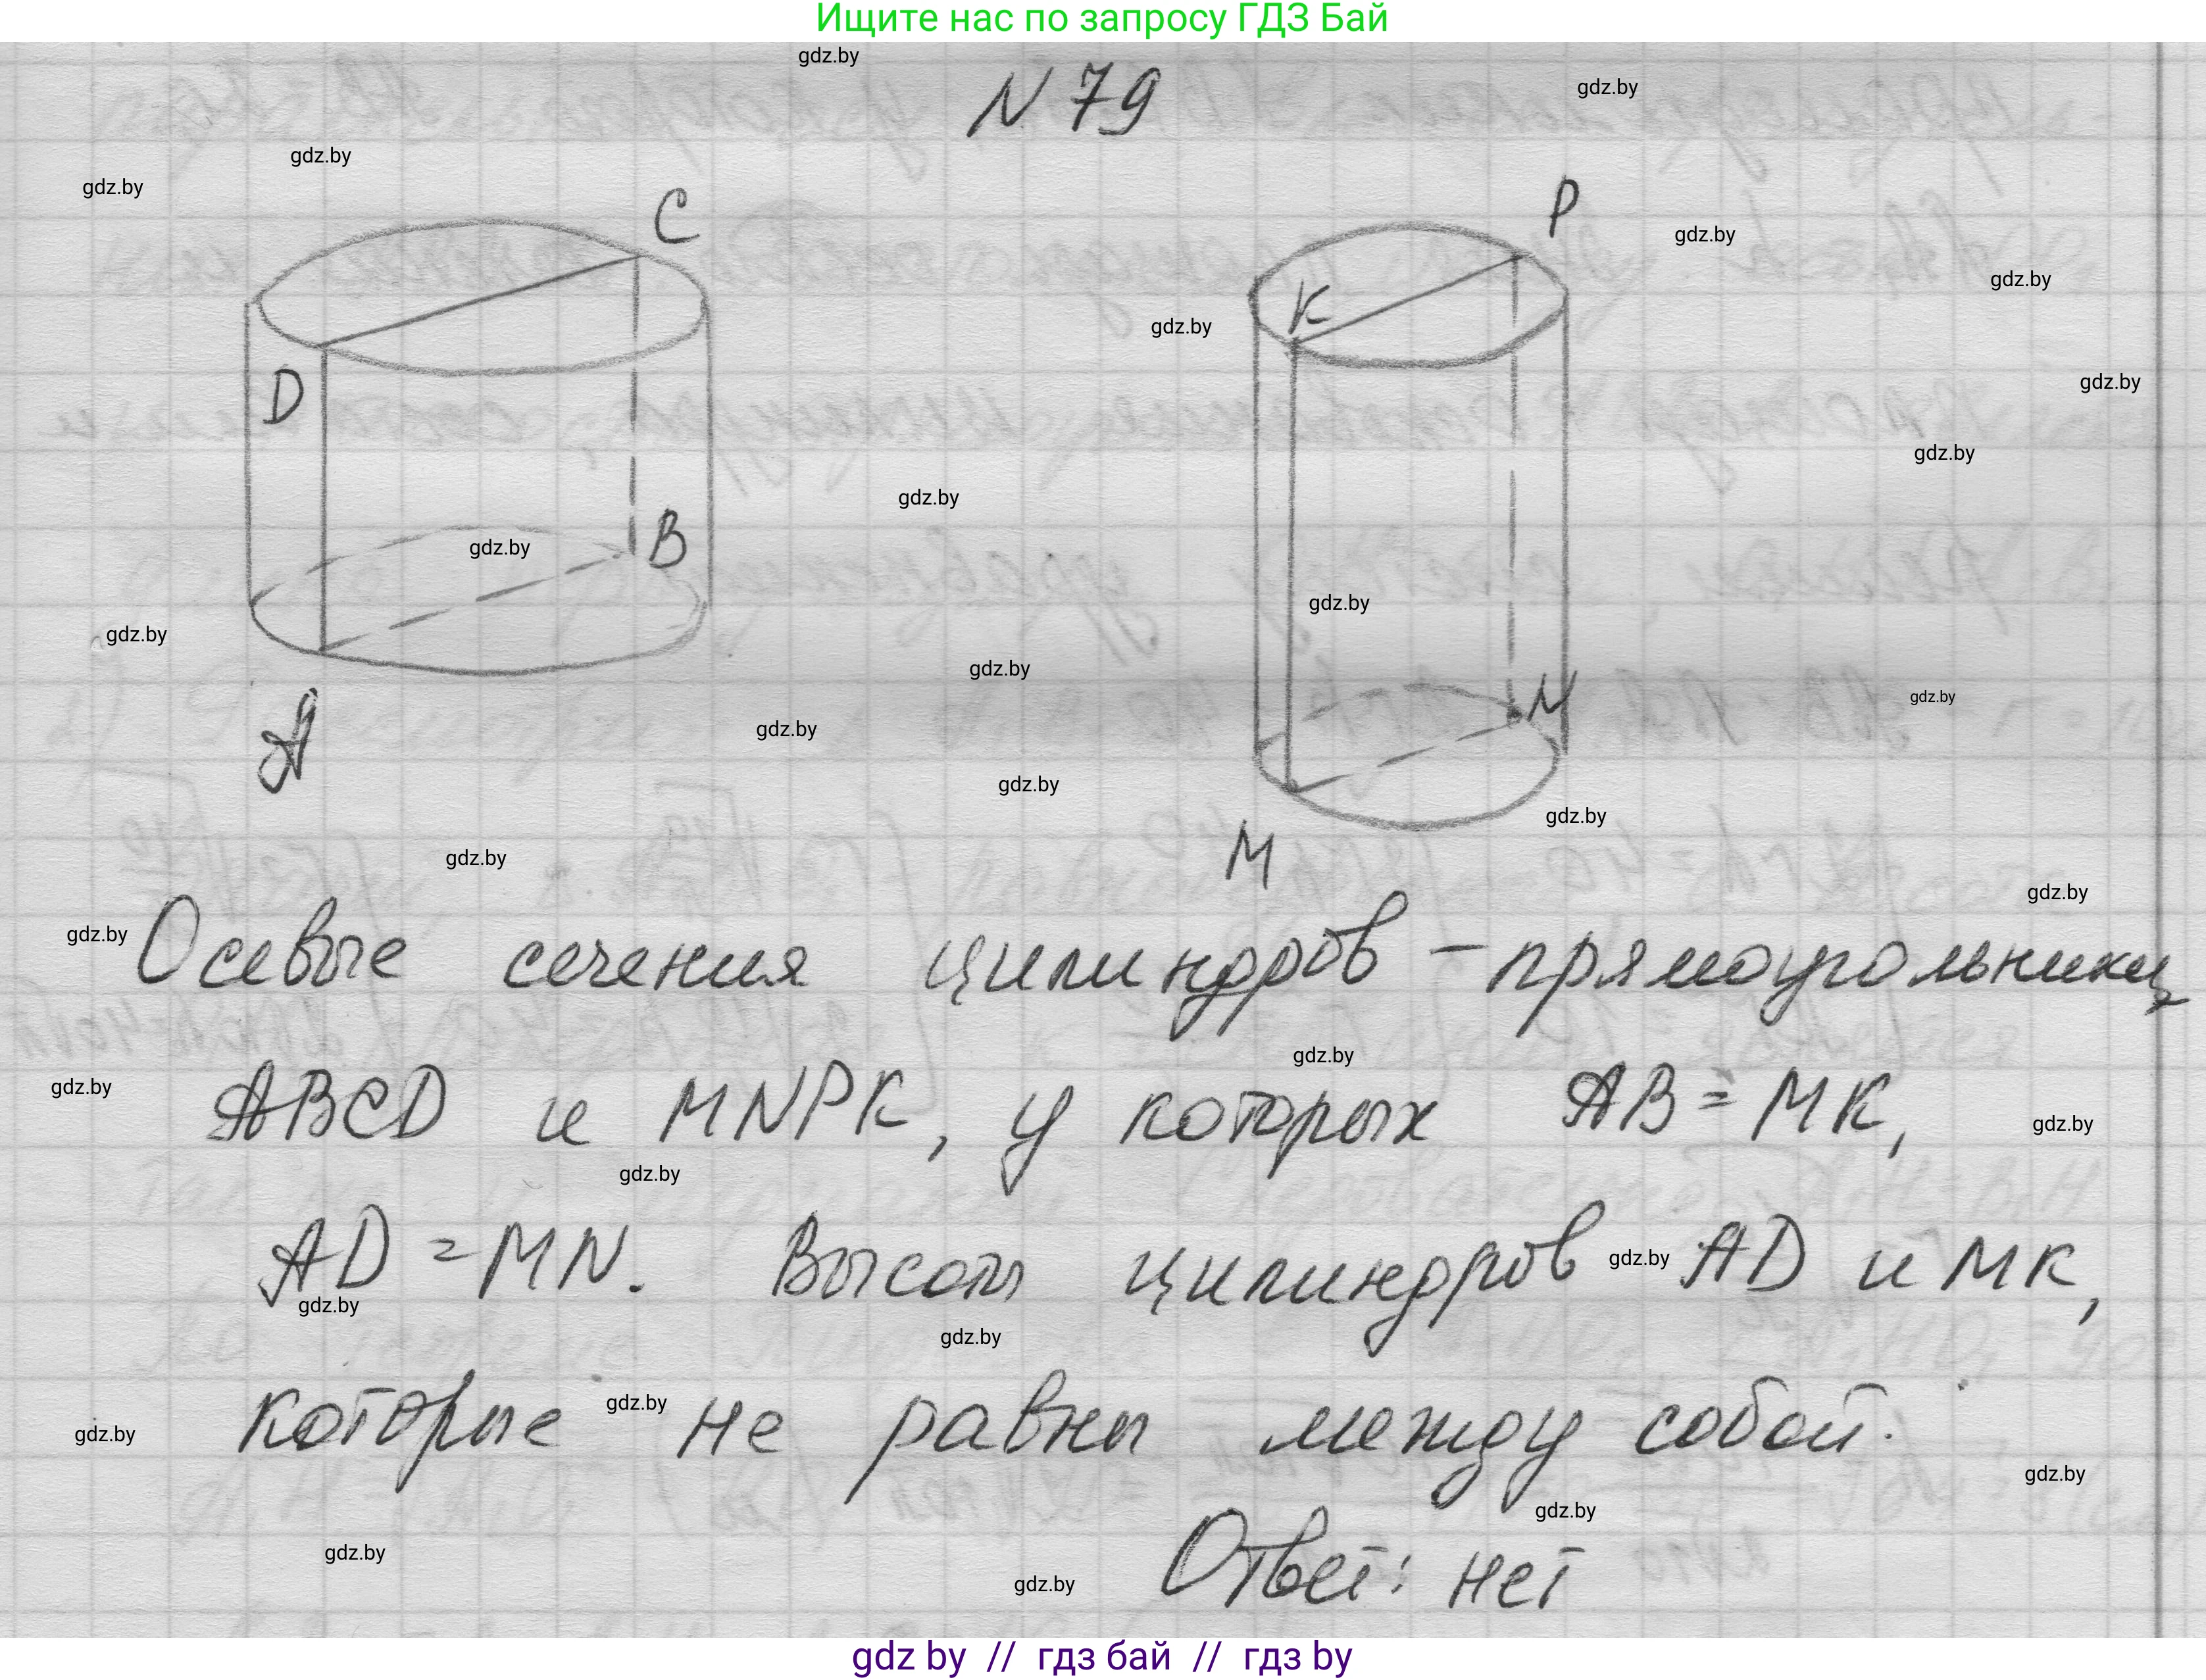 Ищите нас по запросу ГДЗ Бай
gdz.by
N 79
gdz.by
gdz.by
gdz.by
C
P
gdz.by
gdz.by
K
gdz.by
D
gdz.by
gdz.by
gdz.by
B
gdz.by
gdz.by
gdz.by
gdz.by
N
gdz.by
A
gdz.by
gdz.by
gdz.by
M
gdz.by
gdz.by
gdz.by
Осевые сечения цилиндров – прямоугольники
gdz.by
gdz.by
ABCD и MNPK, у которых AB = MK,
gdz.by
gdz.by
AD = MN. Высоты цилиндров gdz.by AD и MK,
gdz.by
gdz.by
которые gdz.by не равны между собой.
gdz.by
gdz.by
gdz.by
gdz.by
Ответ: нет
gdz.by
gdz by // гдз бай // гдз by